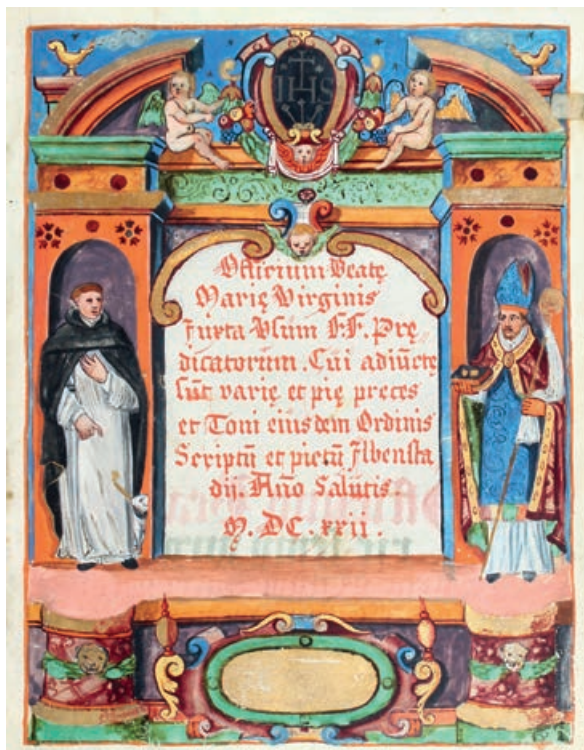 IHS
Officium Beatę
Marię Virginis
Juxta Vsum F.F. Prę¬
dicatorum. Cui adiūctę
sūt varię et pię preces
et Toni eiusdem Ordinis
Scriptū et pictū Albensta
dij. Año Salutis.
M. DC. xxii.